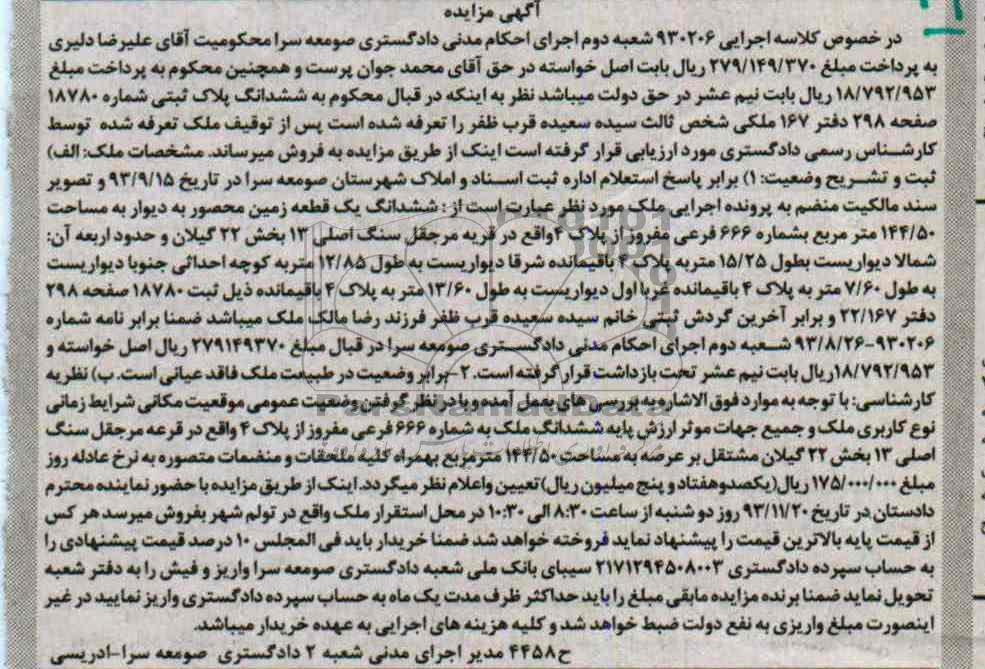 آگهی مزایده
در خصوص کلاسه اجرایی ۹۳۰۲۰۶ شعبه دوم اجرای احکام مدنی دادگستری صومعه سرا محکومیت آقای علیرضا دلیری
به پرداخت مبلغ ۲۷۹/۱۴۹/۳۷۰ ریال بابت اصل خواسته در حق آقای محمد جوان پرست و همچنین محکوم به پرداخت مبلغ
۱۸/۷۹۲/۹۵۳ ریال بابت نیم عشر در حق دولت میباشد نظر به اینکه در قبال محکوم به ششدانگ پلاک ثبتی شماره ۱۸۷۸۰
صفحه ۲۹۸ دفتر ۱۶۷ ملکی شخص ثالث سیده سعیده قرب ظفر را تعرفه شده است پس از توقیف ملک تعرفه شده توسط
کارشناس رسمی دادگستری مورد ارزیابی قرار گرفته است اینک از طریق مزایده به فروش میرساند. مشخصات ملک: الف)
ثبت و تشریح وضعیت: ۱) برابر پاسخ استعلام اداره ثبت اسناد و املاک شهرستان صومعه سرا در تاریخ ۹۳/۹/۱۵ و تصویر
سند مالکیت منضم به پرونده اجرایی ملک مورد نظر عبارت است از : ششدانگ یک قطعه زمین محصور به دیوار به مساحت
۱۴۴/۵۰ متر مربع بشماره ۶۶۶ فرعی مفروز از پلاک ۴ واقع در قریه مرجقل سنگ اصلی ۱۳ بخش ۲۲ گیلان و حدود اربعه آن:
شمالا دیواریست بطول ۱۵/۲۵ متر به پلاک ۴ باقیمانده شرقا دیواریست به طول ۱۲/۸۵ متر به کوچه احداثی جنوبا دیواریست
به طول ۷/۶۰ متر به پلاک ۴ باقیمانده غربا اول دیواریست به طول ۱۳/۶۰ متر به پلاک ۴ باقیمانده ذیل ثبت ۱۸۷۸۰ صفحه ۲۹۸
دفتر ۲۲/۱۶۷ و برابر آخرین گردش ثبتی خانم سیده سعیده قرب ظفر فرزند رضا مالک ملک میباشد ضمنا برابر نامه شماره
۹۳۰۲۰۶-۹۳/۸/۲۶ شعبه دوم اجرای احکام مدنی دادگستری صومعه سرا در قبال مبلغ ۲۷۹۱۴۹۳۷۰ ریال اصل خواسته و
۱۸/۷۹۲/۹۵۳ریال بابت نیم عشر تحت بازداشت قرار گرفته است. ۲- برابر وضعیت در طبیعت ملک فاقد عیانی است. ب) نظریه
کارشناسی: با توجه به موارد فوق الاشاره به بررسی های بعمل آمده و با در نظر گرفتن وضعیت عمومی موقعیت مکانی شرایط زمانی
نوع کاربری ملک و جمیع جهات موثر ارزش پایه ششدانگ ملک به شماره ۶۶۶ فرعی مفروز از پلاک ۴ واقع در قرعه مرجقل سنگ
اصلی ۱۳ بخش ۲۲ گیلان مشتقل بر عرصه به مساحت ۱۴۴/۵۰ مترمربع بهمراه کلیه ملحقات و منضمات متصوره به نرخ عادله روز
مبلغ ۱۷۵/۰۰۰/۰۰۰ ریال(یکصدوهفتاد و پنج میلیون ریال) تعیین واعلام نظر میگردد. اینک از طریق مزایده با حضور نماینده محترم
دادستان در تاریخ ۹۳/۱۱/۲۰ روز دو شنبه از ساعت ۸:۳۰ الی ۱۰:۳۰ در محل استقرار ملک واقع در تولم شهر بفروش میرسد هر کس
از قیمت پایه بالاترین قیمت را پیشنهاد نماید فروخته خواهد شد ضمنا خریدار باید فی المجلس ۱۰ درصد قیمت پیشنهادی را
به حساب سپرده دادگستری ۲۱۷۱۲۹۴۵۰۸۰۰۳ سیبای بانک ملی شعبه دادگستری صومعه سرا واریز و فیش را به دفتر شعبه
تحویل نماید ضمنا برنده مزایده مابقی مبلغ را باید حداکثر ظرف مدت یک ماه به حساب سپرده دادگستری واریز نمایید در غیر
اینصورت مبلغ واریزی به نفع دولت ضبط خواهد شد و کلیه هزینه های اجرایی به عهده خریدار میباشد.
ح۴۴۵۸ مدیر اجرای مدنی شعبه ۲ دادگستری صومعه سرا-ادریسی
ParsNamadData